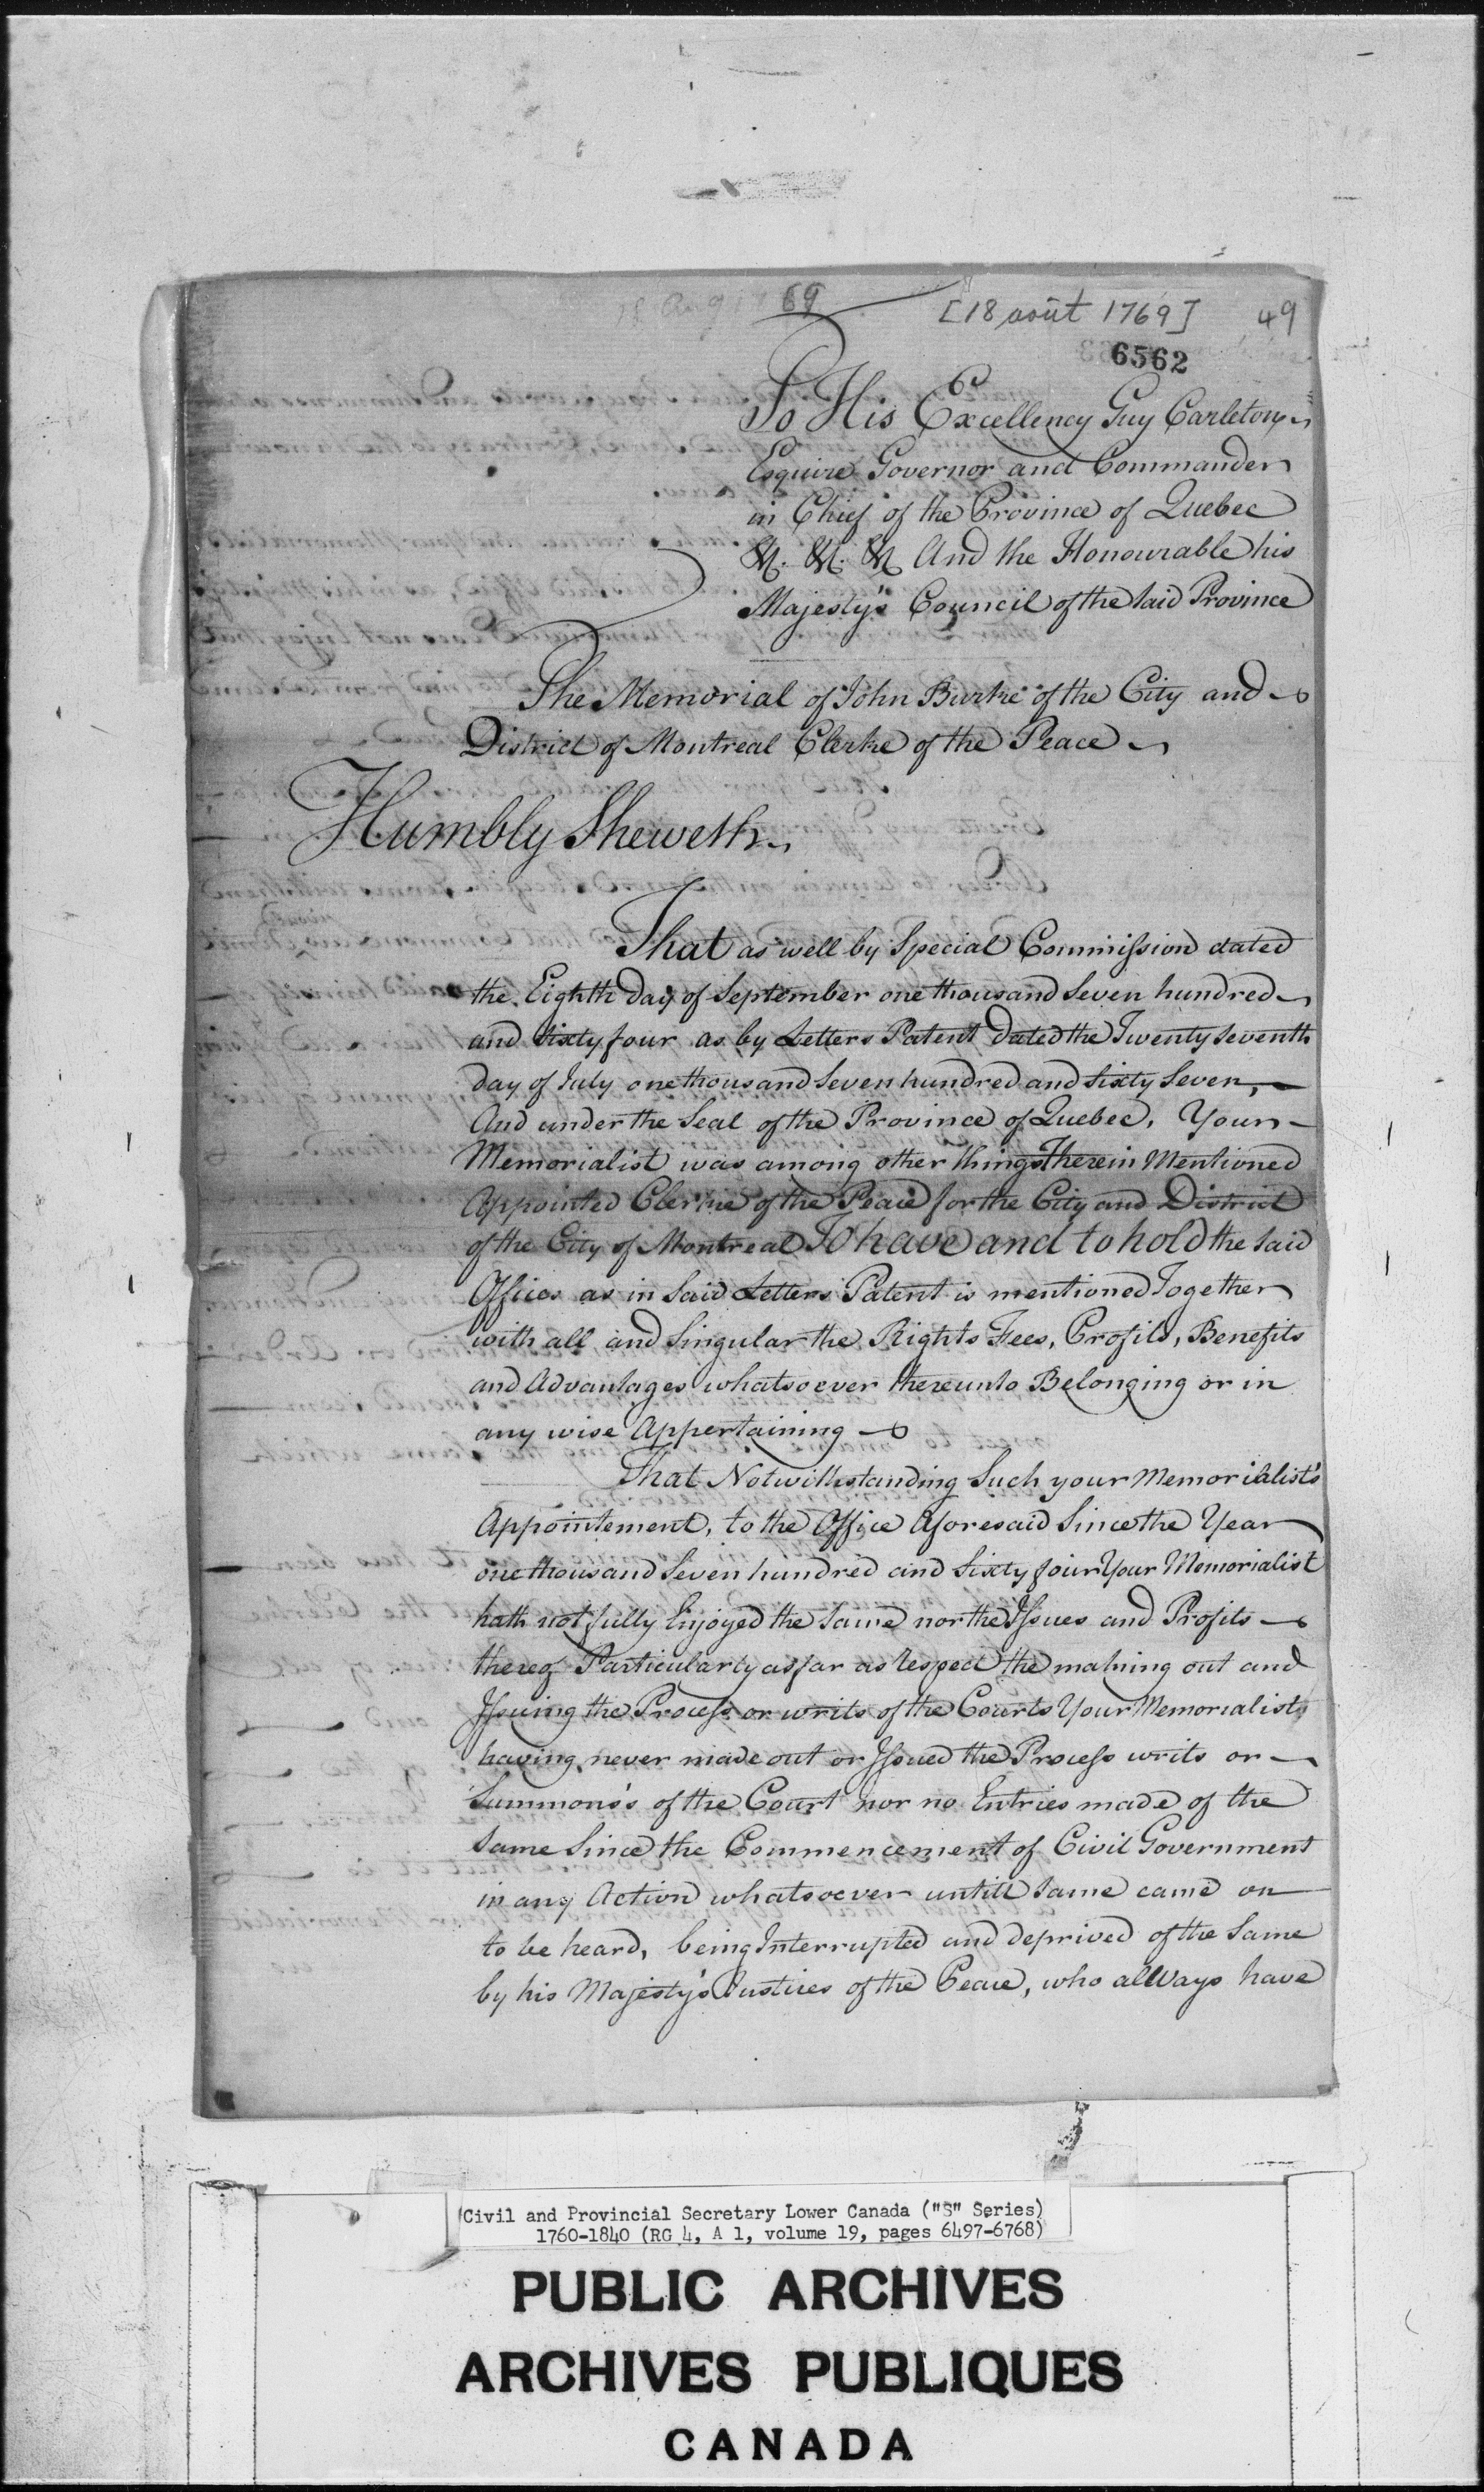 18 Aug 1769
[18 août 1769] 49
6562
To His Excellency Guy Carleton
Esquire Governor and Commander
in Chief of the Province of Quebec
&c. &c. &c And the Honourable his
Majesty's Council of the said Province
The Memorial of John Burke of the City and
District of Montreal Clerke of the Peace
Humbly Sheweth
That as well by Special Commission dated
the Eighth Day of September one thousand Seven hundred
and Sixty four as by Letters Patent dated the Twenty Seventh
day of July one thousand Seven hundred and Sixty Seven,
And under the Seal of the Province of Quebec, Your
Memorialist was among other things Therein Mentioned
Appointed Clerke of the Peace for the City and District
of the City of Montreal To have and to hold the said
Offices as in Said Letters Patent is mentioned Together
with all and Singular the Rights Fees, Profits, Benefits
and Advantages whatsoever thereunto Belonging or in
any wise Appertaining
That Notwithstanding Such your Memorialist's
Appointement, to the Office Aforesaid Since the Year
one thousand Seven hundred and Sixty four Your Memorialist
hath not fully Enjoyed the Same nor the Issues and Profits
thereof Particularly as far as Respect the making out and
Issuing the Process or writs of the Courts Your Memorialist
having never made out or Issued the Process writs or
Summons's of the Court nor no Entries made of the
Same Since the Commencement of Civil Government
in any Action whatsoever untill Same came on
to be heard, being Interrupted and deprived of the Same
by his Majesty's Justices of the Peace, who allWays have
Civil and Provincial Secretary Lower Canada ("S" Series)
1760-1840 (RG 4, A 1, volume 19, pages 6497-6768)
PUBLIC ARCHIVES
ARCHIVES PUBLIQUES
CANADA